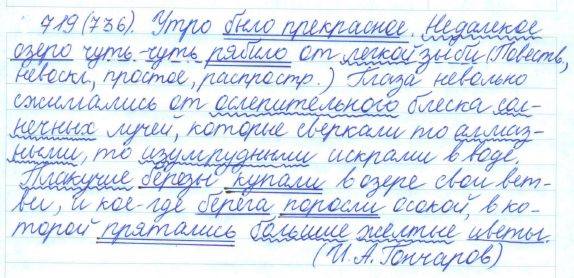 719(736). Утро было прекрасное. Недалекое
озеро чуть-чуть рябило от легкой зыби (Повеств,
невоскл, простое, распростр.) Глаза невольно
сжимались от ослепительного блеска сол-
нечных лучей, которые сверкали то алмаз-
ными, то изумрудными искрами в воде.
Плакучие березы купали в озере свои вет-
ви, и кое-где берега поросли осокой, в ко-
торой прятались большие желтые цветы.
(И.А.Гончаров)